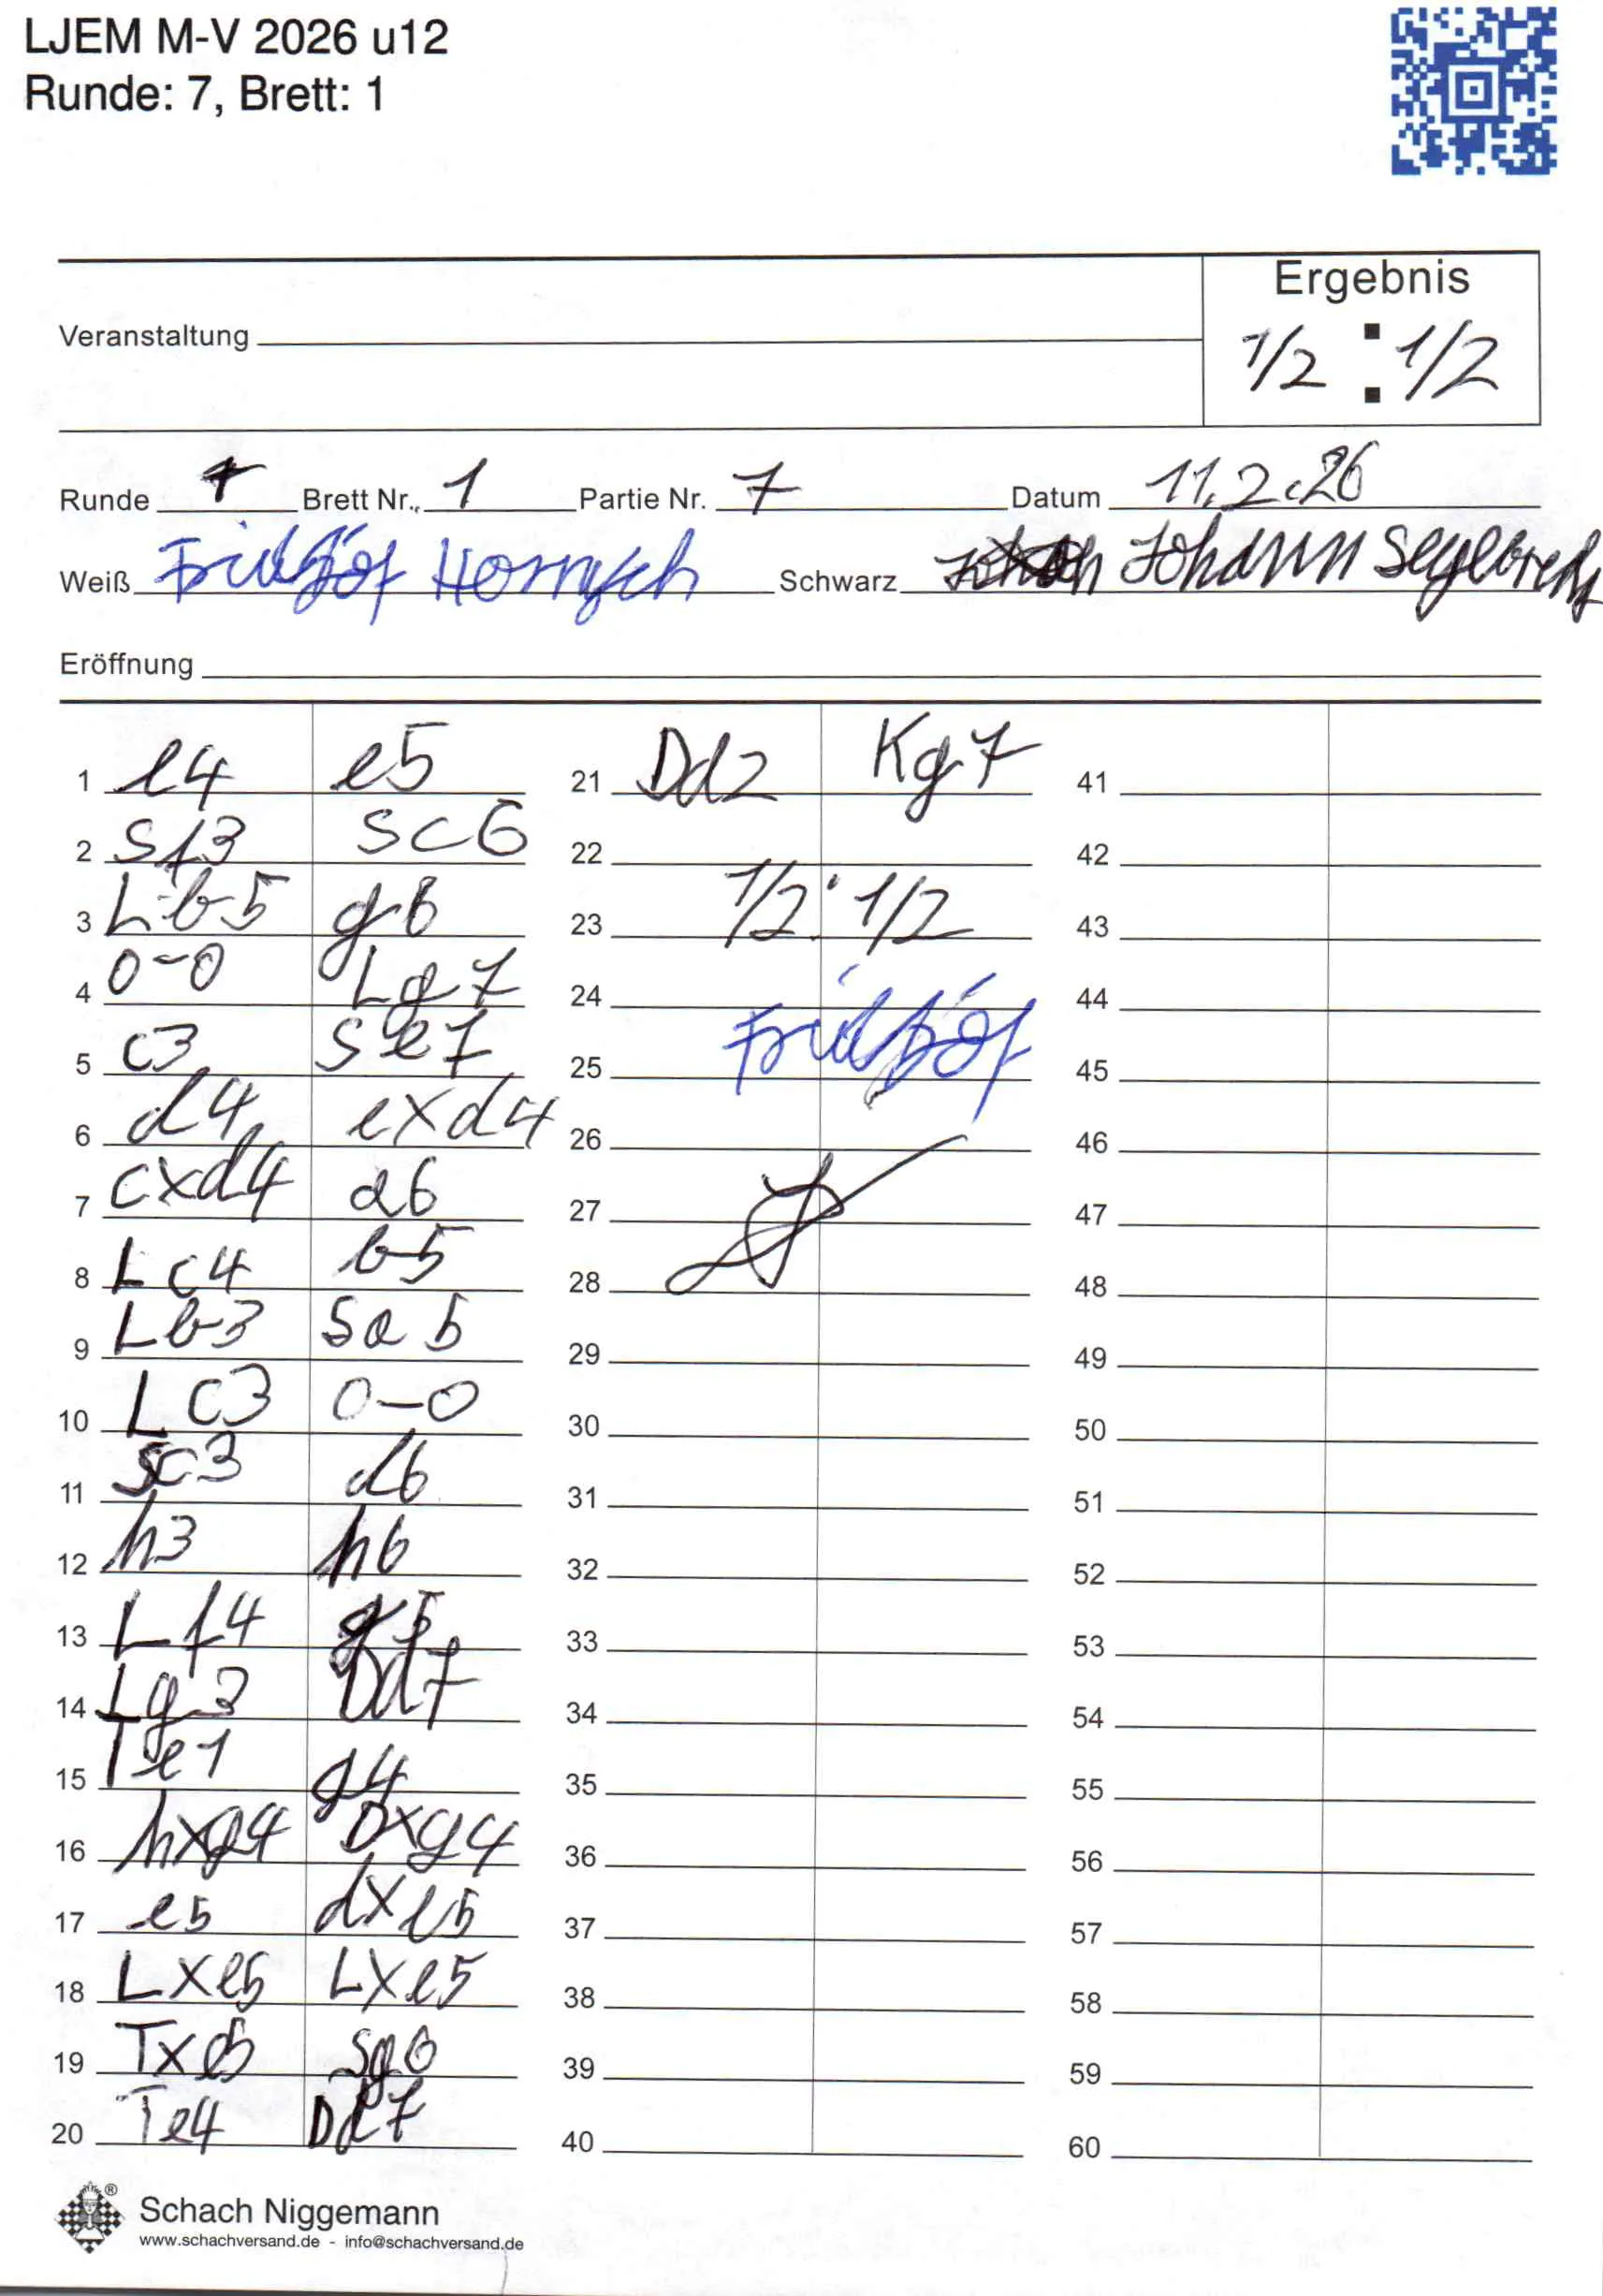 LJEM M-V 2026 u12
Runde: 7, Brett: 1
Ergebnis
Veranstaltung
1/2 : 1/2
Runde 7 Brett Nr. 1 Partie Nr. 7 Datum 11.2.26
Weiß Schwarz Johann
Eröffnung
1 e4 e5
2 Sf3 Sc6
3 Lb5 g6
4 0-0 Lg7
5 c3 Se7
6 d4 exd4
7 cxd4 a6
8 Lc4 b5
9 Lb3 Sa5
10 Lc3 0-0
11 Sc3 d6
12 h3 h6
13 Lf4 g5
14 Lg3 Dd7
15 Te1 g4
16 hxg4 Dxg4
17 e5 dxe5
18 Lxe5 Lxe5
19 Txe5 Sg6
20 Te4 Dd7
21 Dd2 Kg7
22
23 1/2 : 1/2
24
25
26
27
28
29
30
31
32
33
34
35
36
37
38
39
40
41
42
43
44
45
46
47
48
49
50
51
52
53
54
55
56
57
58
59
60
Schach Niggemann
www.schachversand.de - info@schachversand.de